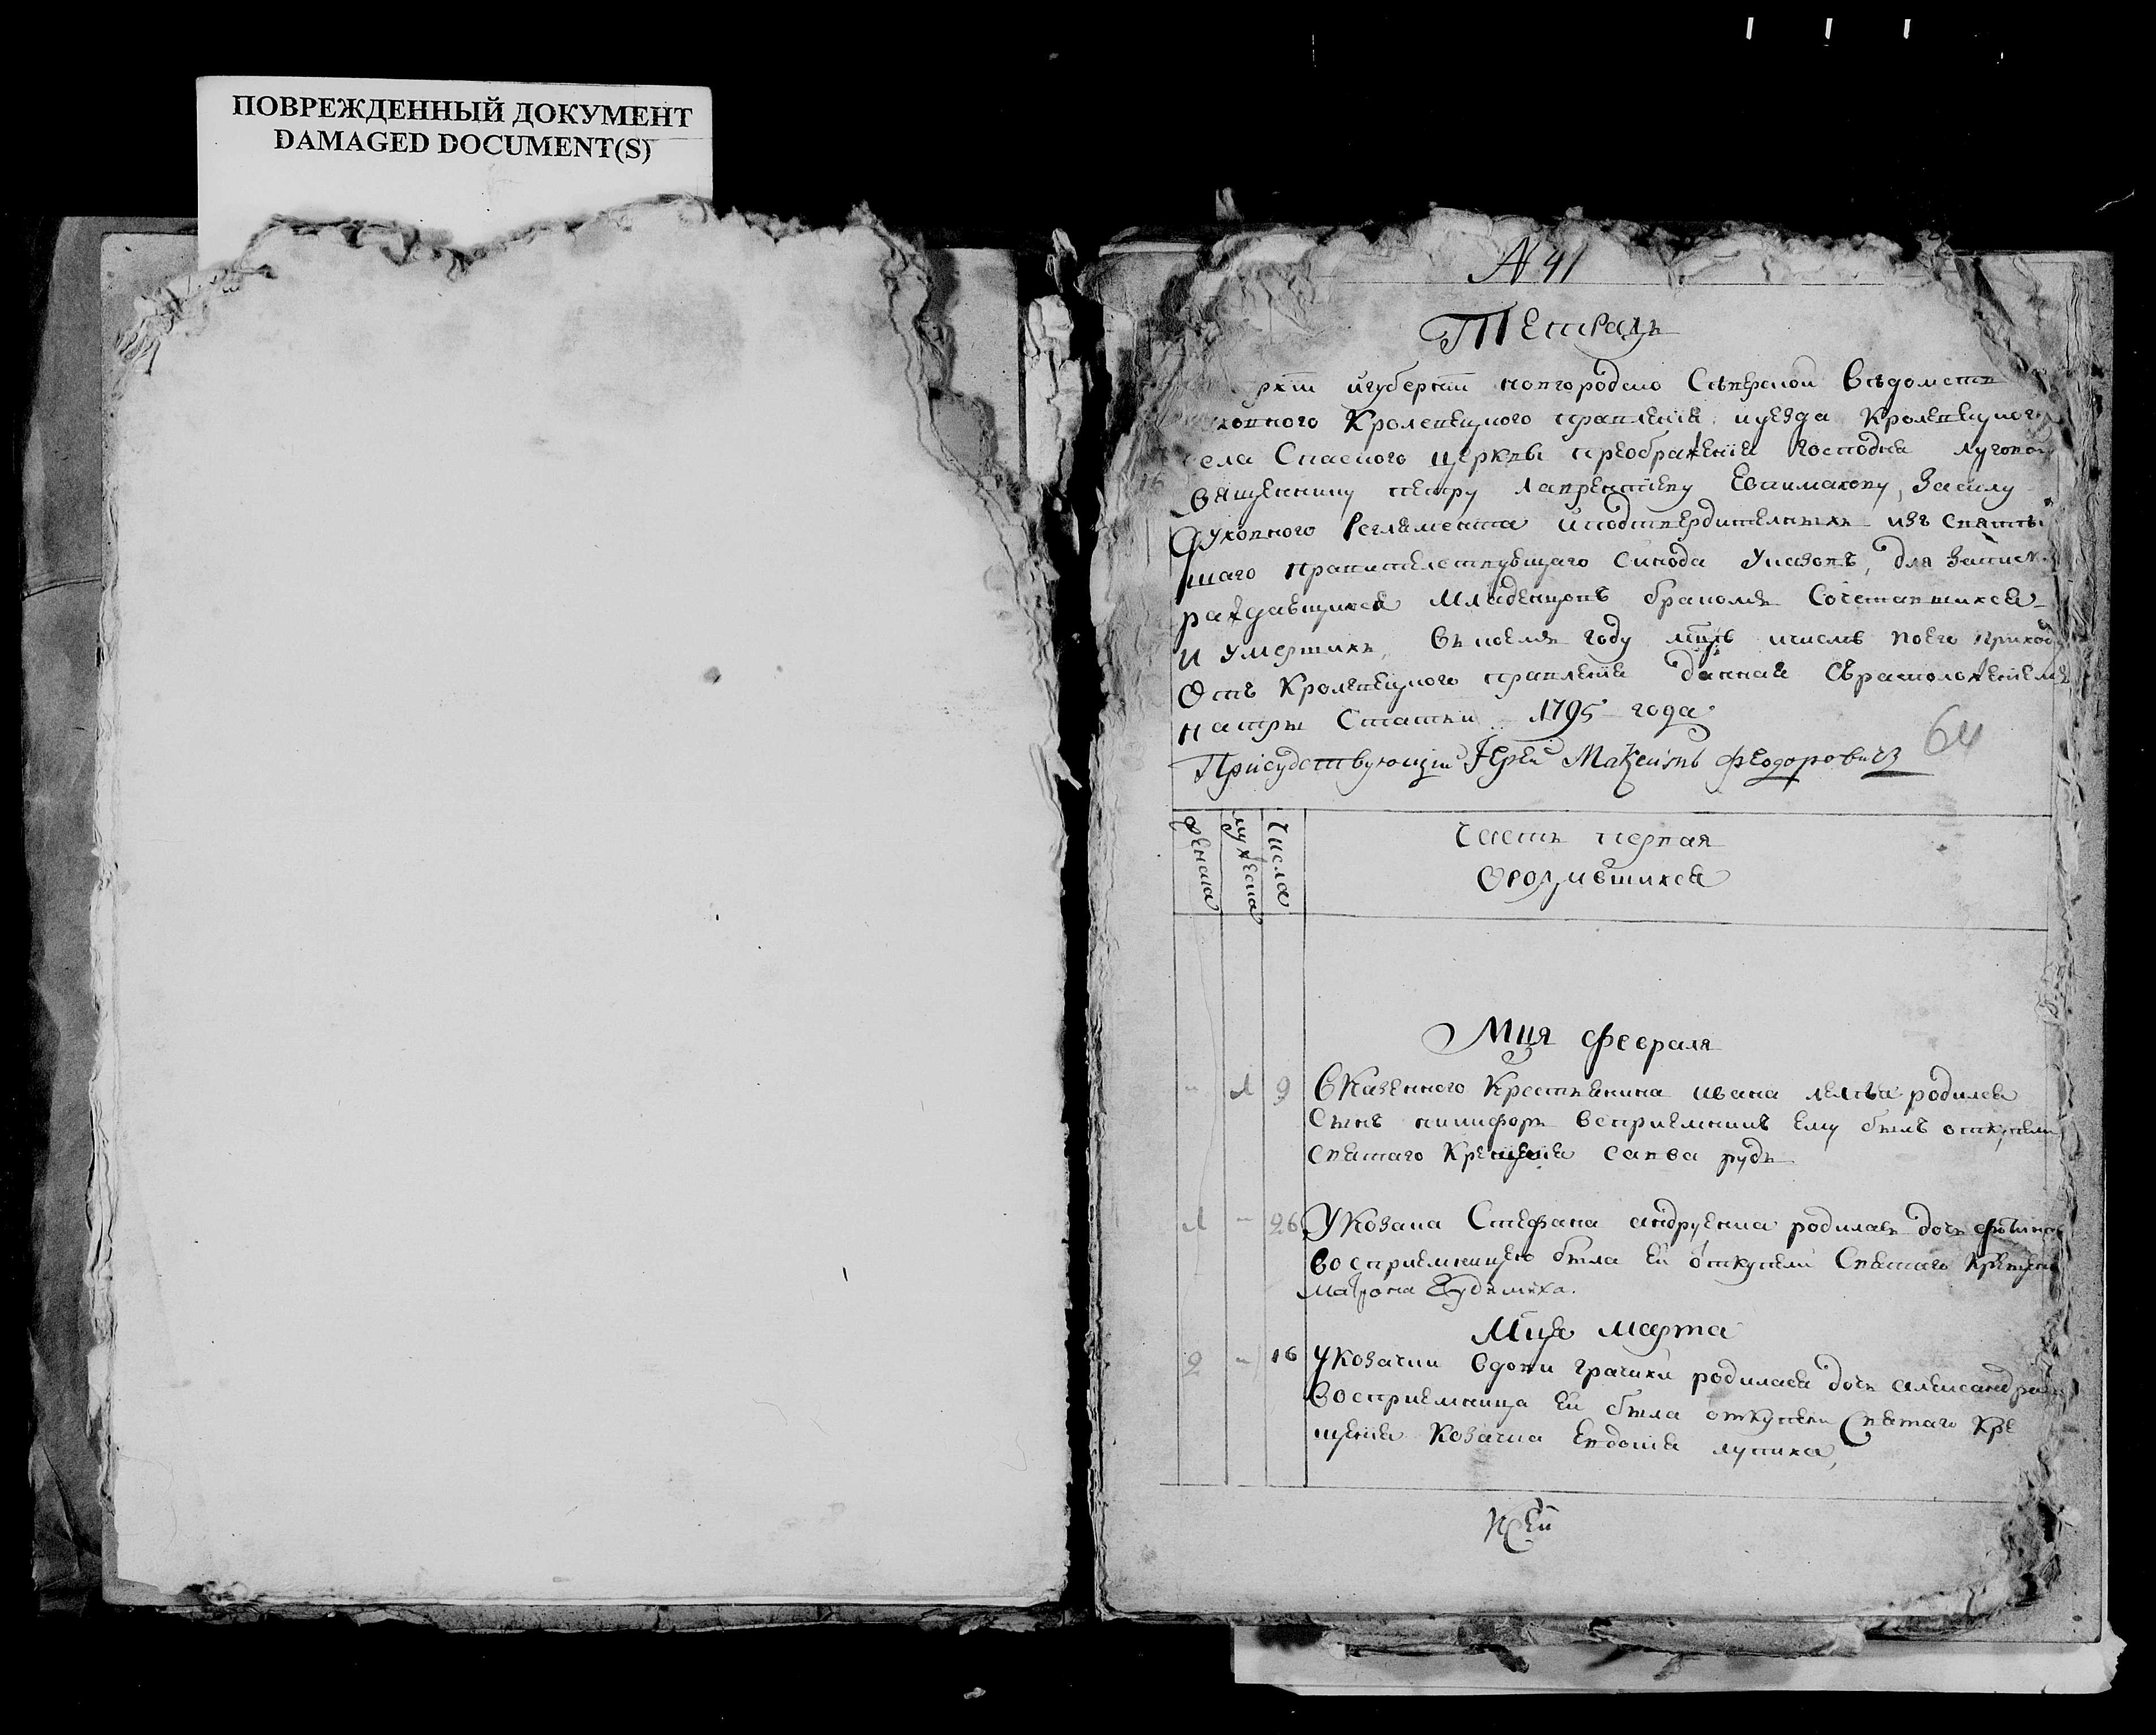 ПОВРЕЖДЕННЫЙ ДОКУМЕНТ
DAMAGED DOCUMENT(S)
№ 41
Тетрадь
губернии новгородско Северской ведомств
ховного Кролевецкого правления иуезда Кролевецкого
села Спаского церквы преображения Господня
священнику петру Лаврентиеву Евфимакову, Засилу
Духовного Регламента иподтвердителныхъ изъ святей
шаго правителствующаго Синода Указовъ, для Записки
раждающихся младенцовъ бракомъ Сочетавшихся
и умершихъ, въ году
Отъ Кролевецкого правления данная съ расположениемъ
натры Статьи 1795 года
Присудствующій Іерей Маѯимъ Феодоровичъ
64
женска
мужеска
числа
Часть первая
Ородившихся
Мця февраля
- 1 9 Вказенного Крестьянина ивана родился
Сынъ никифоръ восприемникъ ему былъ откупели
святаго Крещения савва рудь
1 - 26 Укозака Стефана андруенка родилась дочь
восприемницею была ей откупели Святаго Крещения
матрона
Мця марта
2 - 16 Укозачки вдови грачихи родилася дочь александра
Восприемница ей была откупели Святаго Кре
щения Козачка Евдокия лупиха,